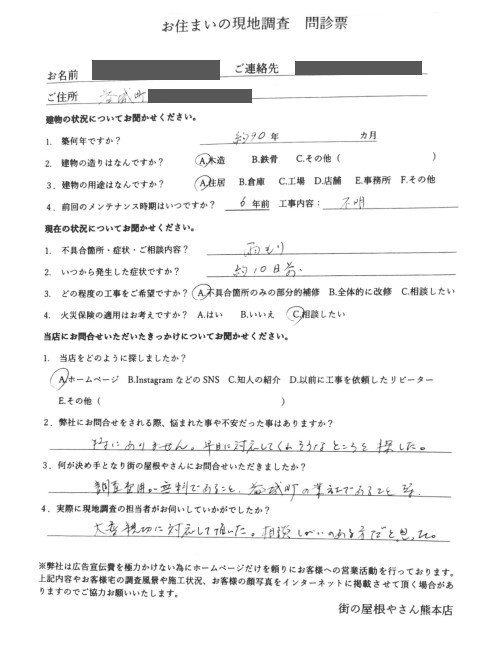 お住まいの現地調査 問診票
お名前 ご連絡先
ご住所 益城町
建物の状況についてお聞かせください。
1. 築何年ですか? 約90年 カ月
2. 建物の造りはなんですか? A.木造 B.鉄骨 C.その他( )
3. 建物の用途はなんですか? A.住居 B.倉庫 C.工場 D.店舗 E.事務所 F.その他
4. 前回のメンテナンス時期はいつですか? 6年前 工事内容: 不明
現在の状況についてお聞かせください。
1. 不具合箇所・症状・ご相談内容? 雨もり
2. いつから発生した症状ですか? 約10日前.
3. どの程度の工事をご希望ですか? A.不具合箇所のみの部分的補修 B.全体的に改修 C.相談したい
4. 火災保険の適用はお考えですか? A.はい B.いいえ C.相談したい
当店にお問合せいただいたきっかけについてお聞かせください。
1. 当店をどのように探しましたか?
A.ホームページ B.InstagramなどのSNS C.知人の紹介 D.以前に工事を依頼したリピーター
E.その他( )
2. 弊社にお問合せをされる際、悩まれた事や不安だった事はありますか?
特にありません。早目に対応してくれそうなところを探した。
3. 何が決め手となり街の屋根やさんにお問合せいただきましたか?
調査費用が無料であること、益城町の業社であること等.
4. 実際に現地調査の担当者がお伺いしていかがでしたか?
大変親切に対応して頂いた。相談しがいのある方だと思った。
※弊社は広告宣伝費を極力かけない為にホームページだけを頼りにお客様への営業活動を行っております。
上記内容やお客様宅の調査風景や施工状況、お客様の顔写真をインターネットに掲載させて頂く場合があ
りますのでご協力お願いいたします。
街の屋根やさん熊本店